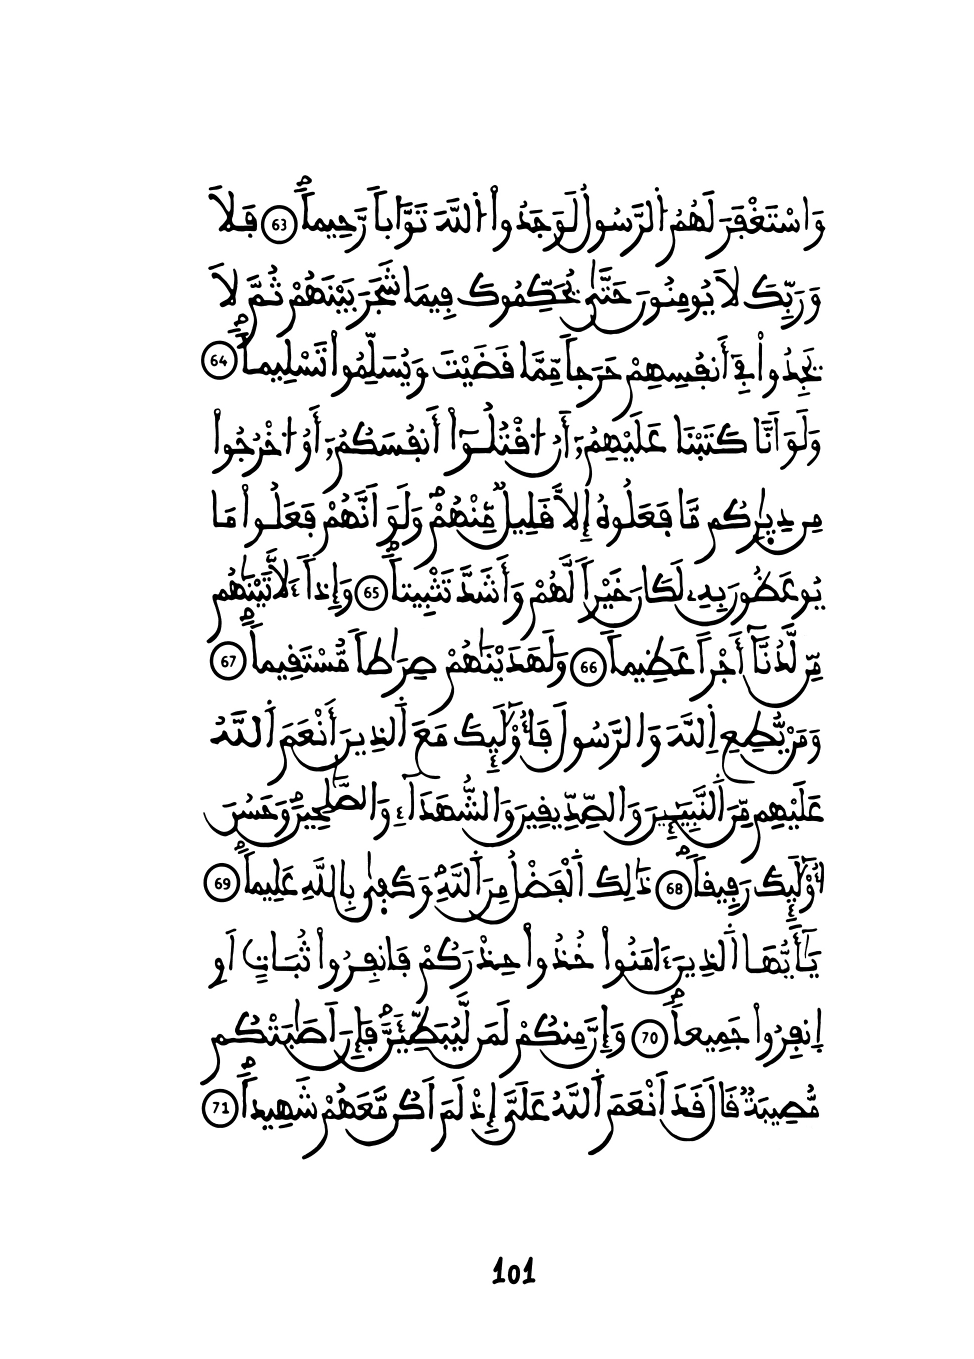 وَاسْتَغْفَرَ لَهُمُ الرَّسُولُ لَوَجَدُواْ اللَّهَ تَوَّاباً رَّحِيماًۖ 63 فَلاَ
وَرَبِّكَ لاَ يُومِنُونَ حَتَّىٰ يُحَكِّمُوكَ فِيمَا شَجَرَ بَيْنَهُمْ ثُمَّ لاَ
يَجِدُواْ فِےٓ أَنفُسِهِمْ حَرَجاً مِّمَّا قَضَيْتَ وَيُسَلِّمُواْ تَسْلِيماًۖ 64
وَلَوَ اَنَّا كَتَبْنَا عَلَيْهِمُۥٓ أَنُ اقْتُلُوٓاْ أَنفُسَكُمُۥٓ أَوُ اخْرُجُواْ
مِن دِيٰرِكُم مَّا فَعَلُوهُ إِلاَّ قَلِيلٌ مِّنْهُمْۖ وَلَوَ اَنَّهُمْ فَعَلُواْ مَا
يُوعَظُونَ بِهِۦ لَكَانَ خَيْراً لَّهُمْ وَأَشَدَّ تَثْبِيتاًۖ 65 وَإِذاً ءَلاَّتَيْنَٰهُم
مِّن لَّدُنَّآ أَجْراً عَظِيماً 66 وَلَهَدَيْنَٰهُمْ صِرَٰطاً مُّسْتَقِيماًۖ 67
وَمَنْ يُّطِعِ اِللَّهَ وَالرَّسُولَ فَأُوْلَٰٓئِكَ مَعَ اَلذِينَ أَنْعَمَ اَللَّهُ
عَلَيْهِم مِّنَ اَلنَّبِيٓـِٕينَ وَالصِّدِّيقِينَ وَالشُّهَدَآءِ وَالصَّٰلِحِينَۖ وَحَسُنَ
أُوْلَٰٓئِكَ رَفِيقاًۖ 68 ذَٰلِكَ اَلْفَضْلُ مِنَ اَللَّهِۖ وَكَفَىٰ بِاللَّهِ عَلِيماًۖ 69
يَٰٓأَيُّهَا اَلذِينَ ءَامَنُواْ خُذُواْ حِذْرَكُمْ فَانفِرُواْ ثُبَاتٍ اَوِ
اِنفِرُواْ جَمِيعاًۖ 70 وَإِنَّ مِنكُمْ لَمَن لَّيُبَطِّئَنَّۖ فَإِنَ اَصَٰبَتْكُم
مُّصِيبَةٌ قَالَ قَدَ اَنْعَمَ اَللَّهُ عَلَيَّ إِذْ لَمَ اَكُن مَّعَهُمْ شَهِيداًۖ 71
101